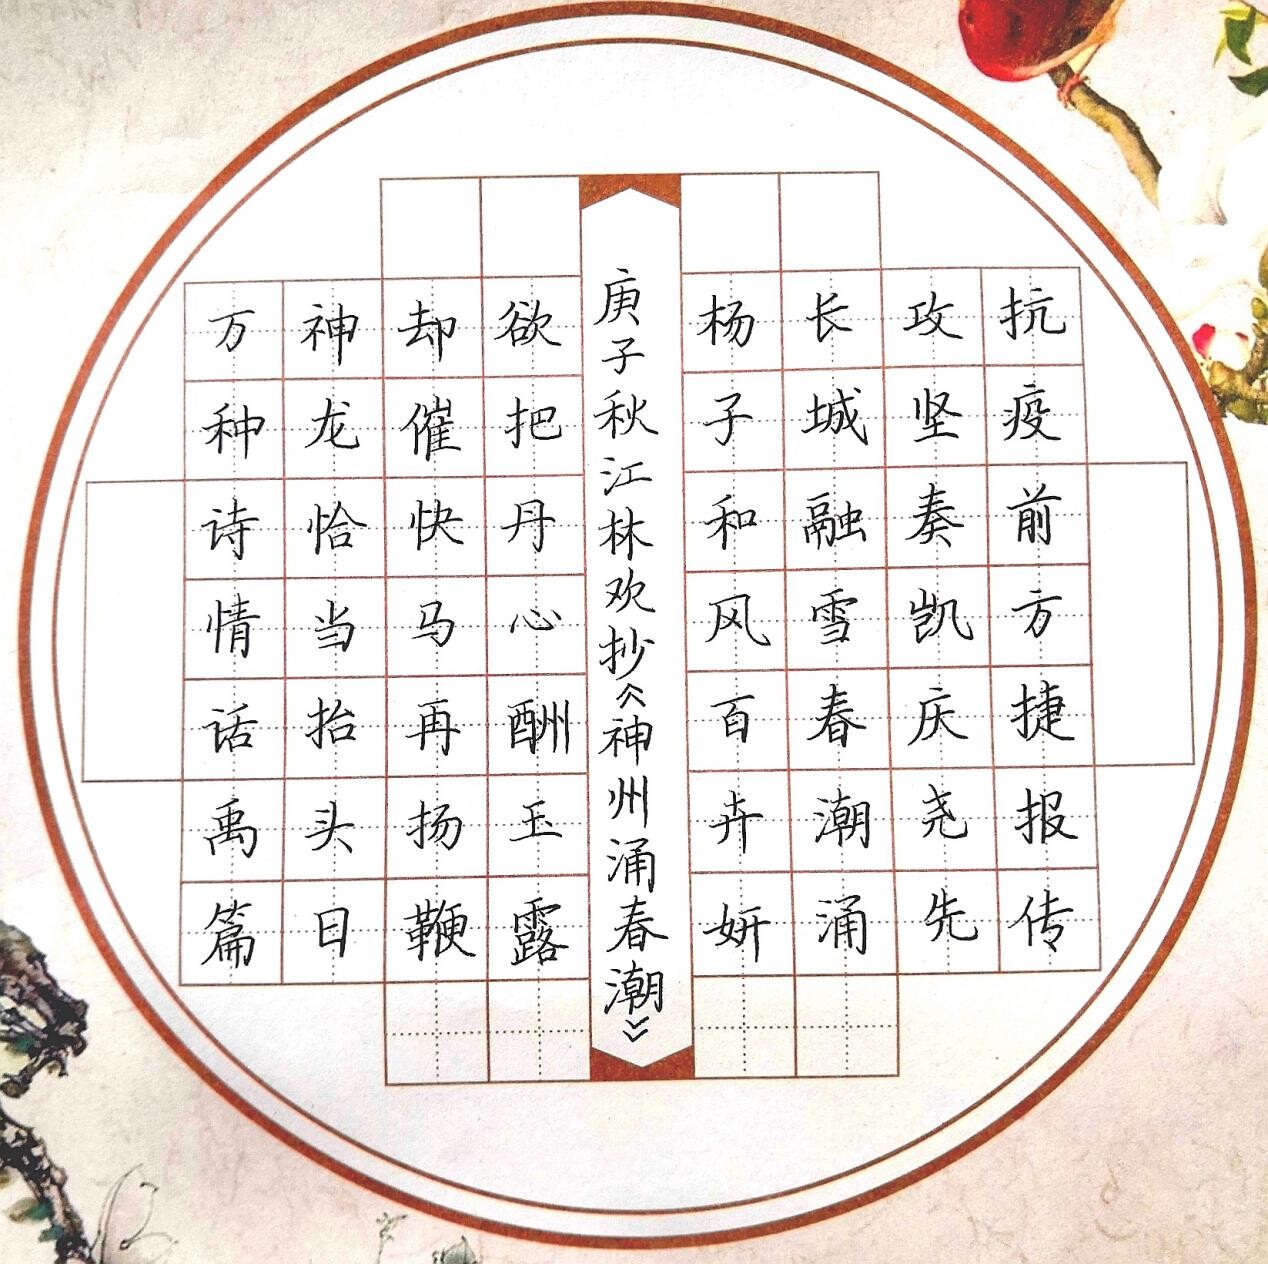 抗疫前方捷报传
攻坚奏凯庆尧先
长城融雪春潮涌
杨子和风百卉妍
庚子秋江林欢抄《神州涌春潮》
欲把丹心酬玉露
却催快马再扬鞭
神龙恰当抬头日
万种诗情话禹篇